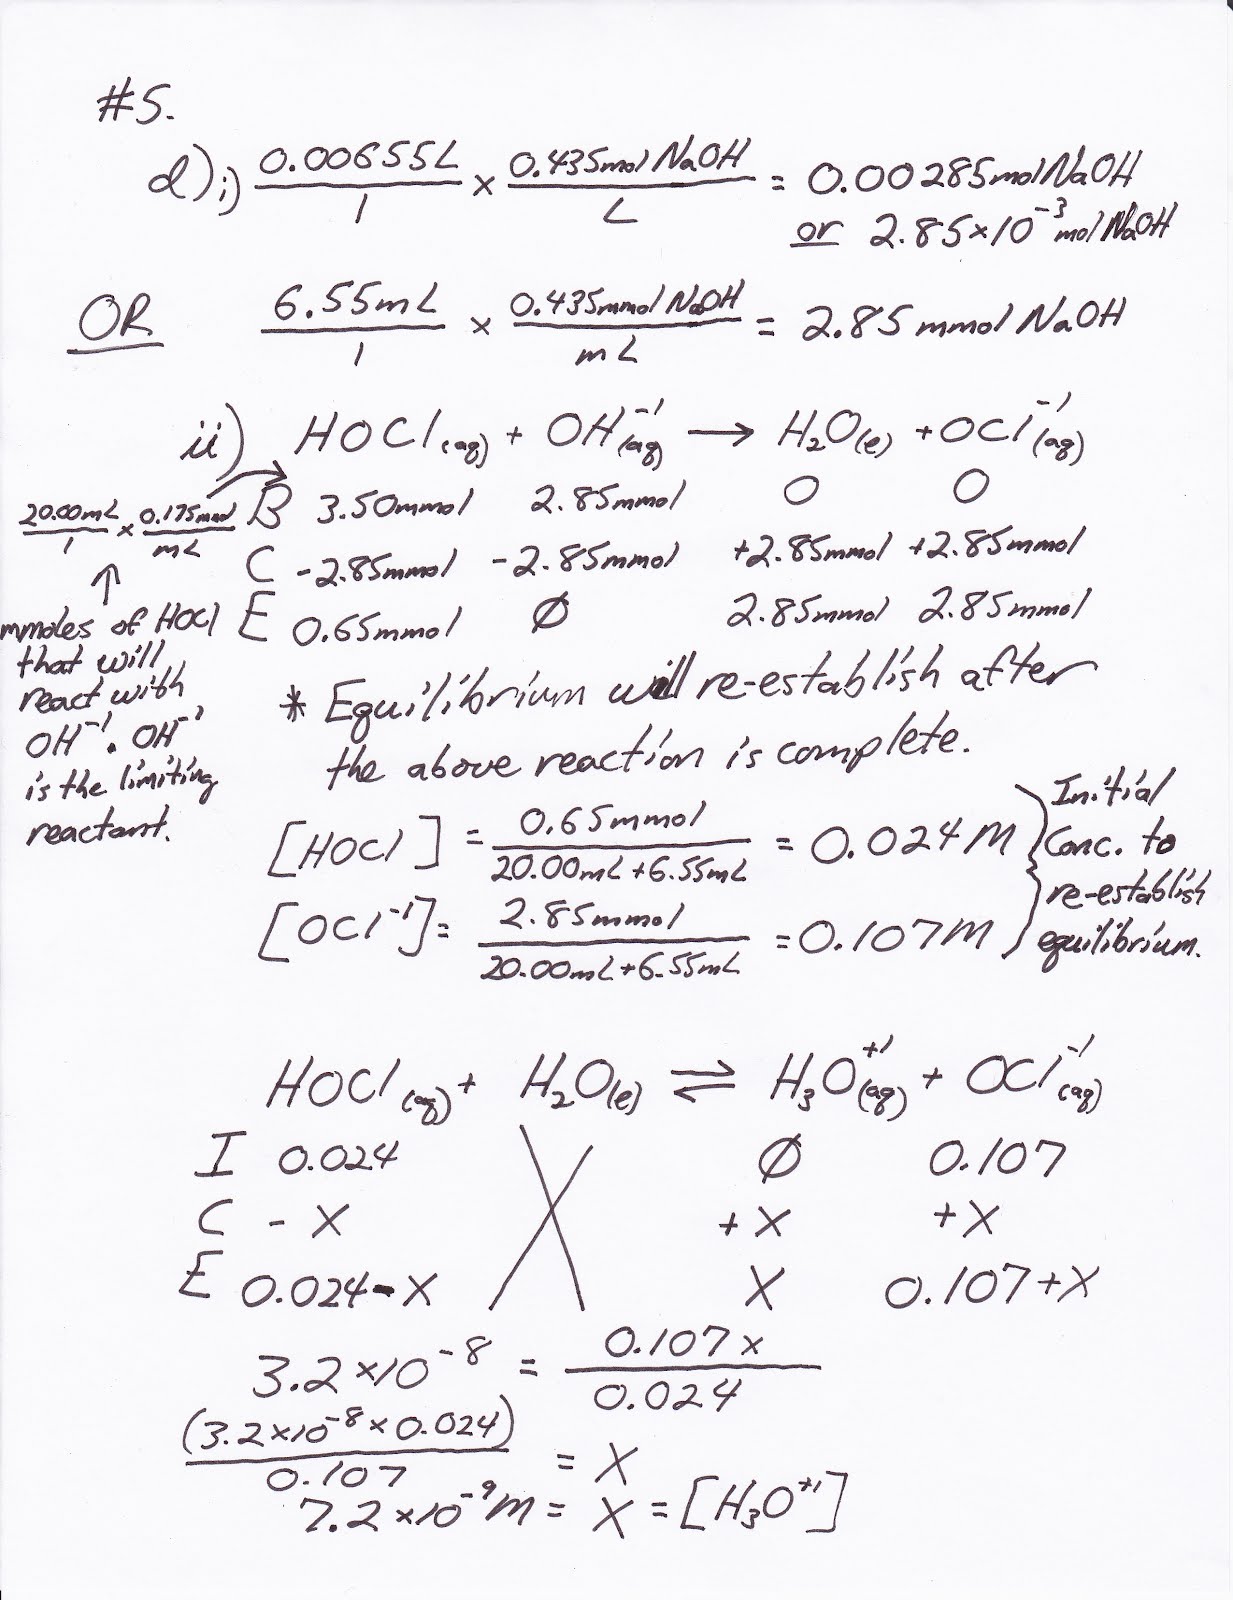 #5.
d) i) 0.00655L/1 × 0.435mol NaOH/L = 0.00285mol NaOH
or 2.85×10⁻³ mol NaOH
OR 6.55mL/1 × 0.435mmol NaOH/mL = 2.85 mmol NaOH
ii) HOCl(aq) + OH⁻¹(aq) → H₂O(ℓ) + OCl⁻¹(aq)
20.00mL/1 × 0.175mmol/mL
B 3.50mmol 2.85mmol 0 0
C -2.85mmol -2.85mmol +2.85mmol +2.85mmol
E 0.65mmol Ø 2.85mmol 2.85mmol
↑
mmoles of HOCl
that will
react with
OH⁻¹. OH⁻¹
is the limiting
reactant.
* Equilibrium will re-establish after
the above reaction is complete.
[HOCl] = 0.65mmol/20.00mL+6.55mL = 0.024M
[OCl⁻¹] = 2.85mmol/20.00mL+6.55mL = 0.107M
Initial
Conc. to
re-establish
equilibrium.
HOCl(aq) + H₂O(ℓ) ⇌ H₃O⁺¹(aq) + OCl⁻¹(aq)
I 0.024 Ø 0.107
C - X + X + X
E 0.024-X X 0.107+X
3.2×10⁻⁸ = 0.107x/0.024
(3.2×10⁻⁸×0.024)/0.107 = X
7.2×10⁻⁹M = X = [H₃O⁺¹]